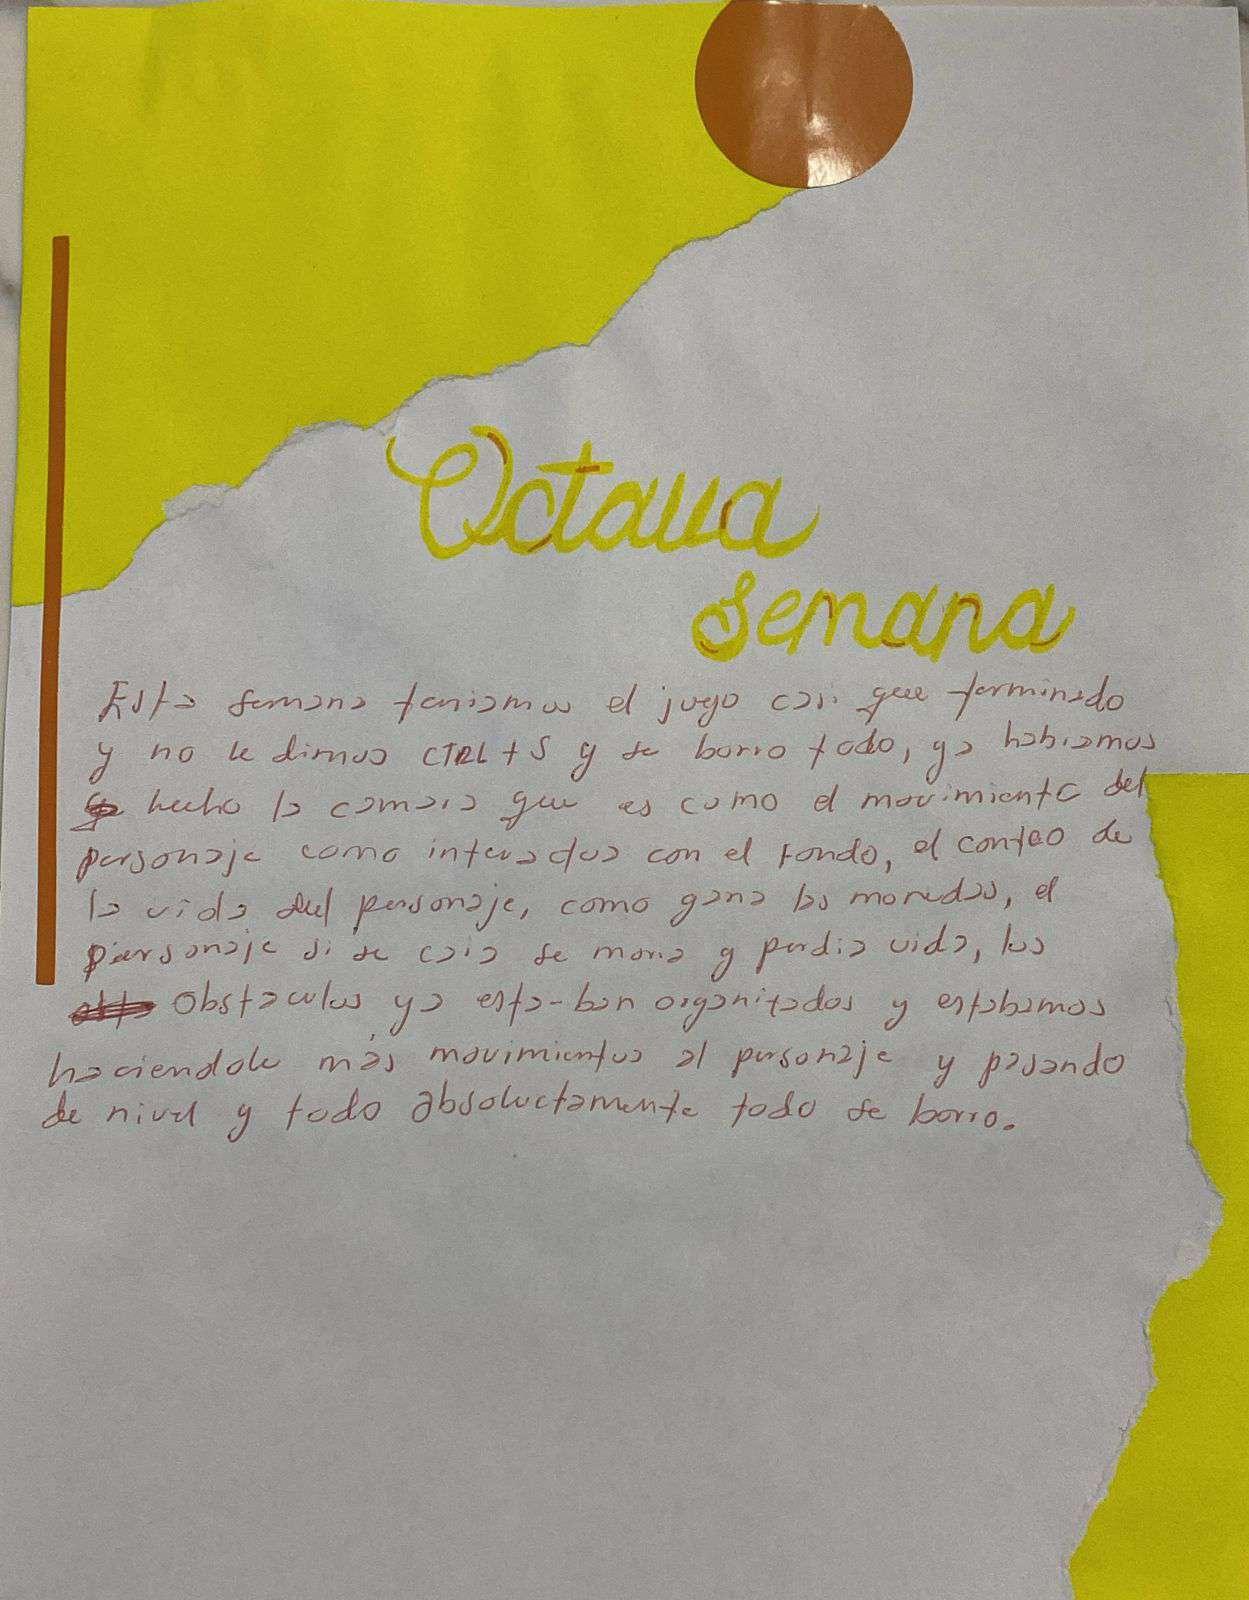 Octava
semana
Esta semana teniamos el juego casi que terminado
y no le dimos CTRL + S y se borro todo, ya habiamos
hecho la camara que es como el movimiento del
personaje como interactua con el fondo, el conteo de
la vida del personaje, como gana las monedas, el
personaje si se caia se moria y perdia vida, los
obstaculos ya esta-ban organizados y estabamos
haciendole más movimientos al personaje y pasando
de nivel y todo absoluctamente todo se borro.